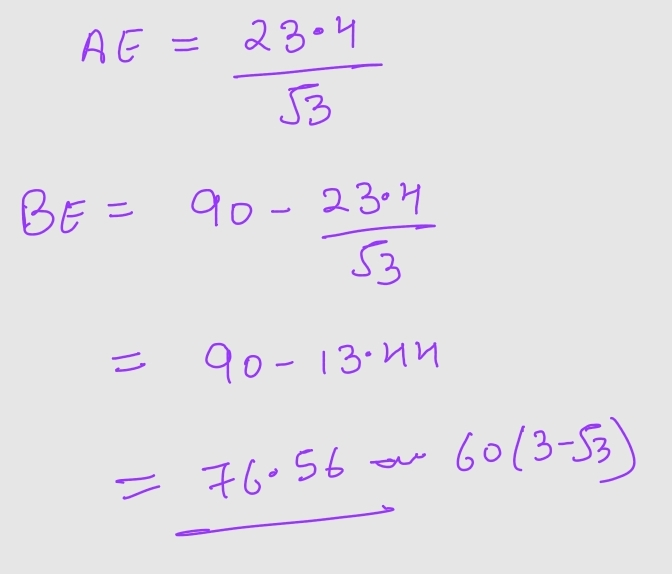 AE = 23.4/√3
BE = 90 - 23.4/√3
= 90 - 13.44
= 76.56 or 60(3-√3)